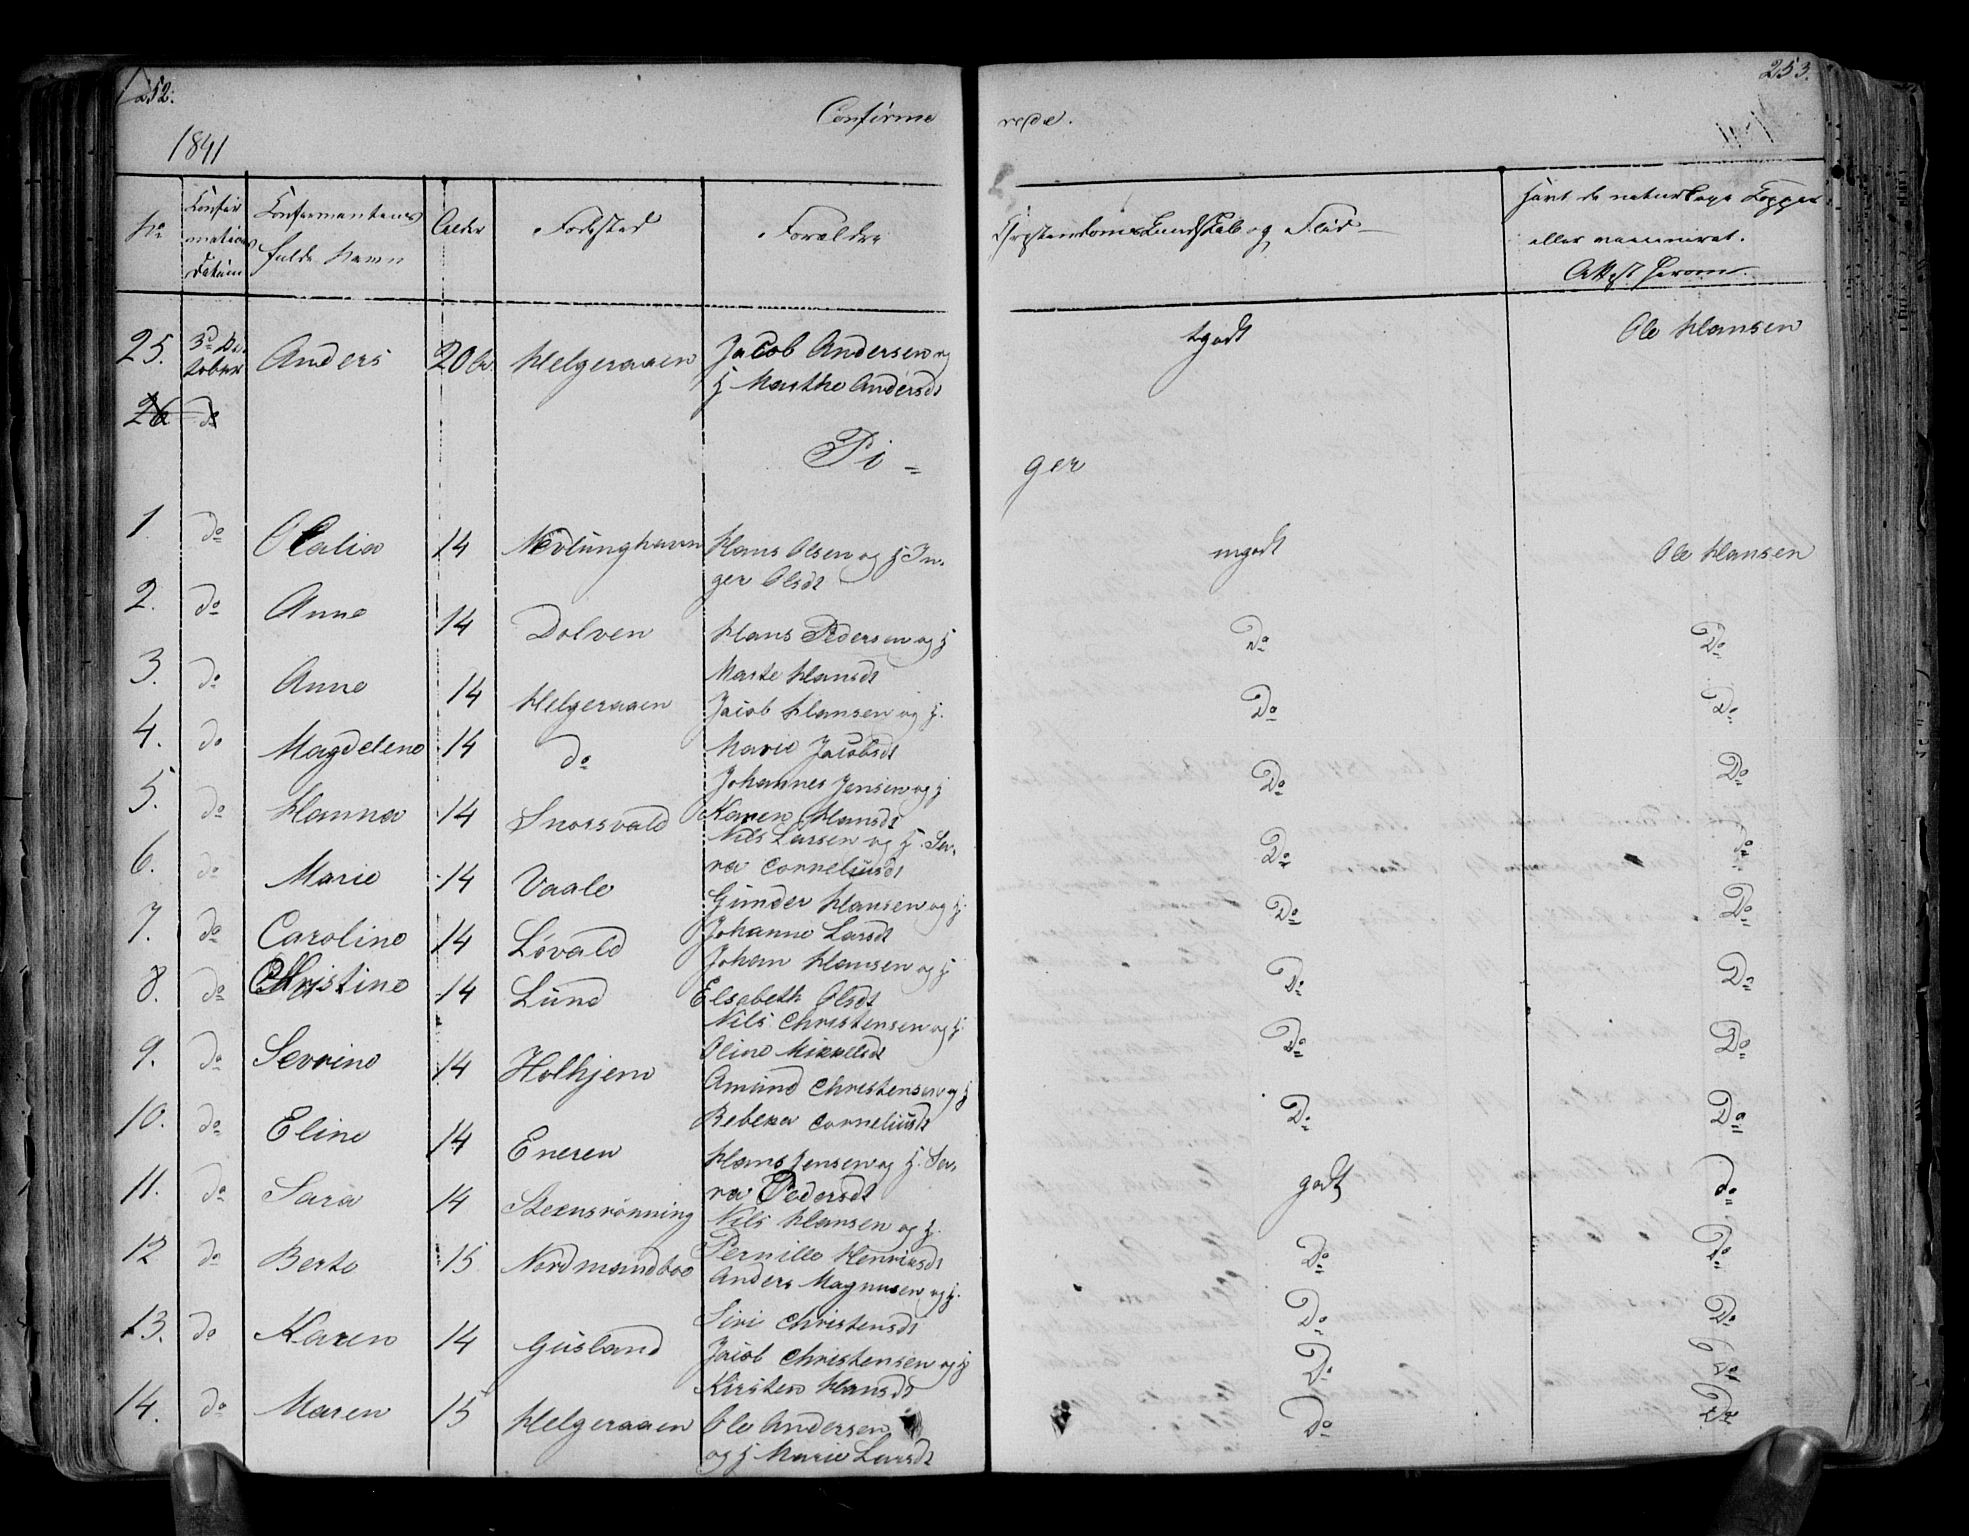 252.
253.
Confirme
rede.
1841
No
Confir
mations
Datum
Confirmantens
fulde Navn
Alder
Fødested
Forældre
Christendoms Kundskab og Flid
havt de naturlige Kopper
eller vaccineret.
Attest herom.
25. 3d Oc-
tober Anders 20 Helgeraaen Jacob Andersen og
H. Marthe Andersdt tgodt Ole Hansen
26 do
Pi =
ger
1. do Olalia 14 Nevlunghavn Hans Olsen og H In-
ger Olsdt mgodt Ole Hansen
2. do Anne 14 Dolven Hans Pedersen og H
Marte Hansdt Do Do
3. do Anne 14 Helgeraaen Jacob Hansen og H.
Marie Jacobsdt Do Do
4. do Magdelene 14 do Johannes Jensen og H
Karen Hansdt Do Do
5. do Hanna 14 Snorsvald Nils Larsen og H. Sa-
ra Corneliusdt Do do
6. do Marie 14 Vaale Gunder Hansen og H.
Johanne Larsdt Do Do
7. do Caroline 14 Løvald Johan Hansen og H
Elsabeth Olsdt Do Do
8. do Christine 14 Lund Nils Christensen og H.
Oline Mikkelsdt Do Do
9. do Severine 14 Holhjem Amund Christensen og H
Rebeka Corneliusdt Do Do
10. do Eline 14 Eneren Hans Jensen og H. Sa-
ra Pedersdt godt do
11. do Sara 14 Steensrønning Nils Hansen og H.
Pernille Henriksdt Do Do
12 do Berte 15 Nordmandboe Anders Magnusen og H.
Siri Christensdt Do Do
13. do Karen 14 Gusland Jacob Christensen og H
Kirsten Hansdt Do Do
14. do Maren 15 Helgeraaen Ole Andersen
og H Marie Larsdt Do Do